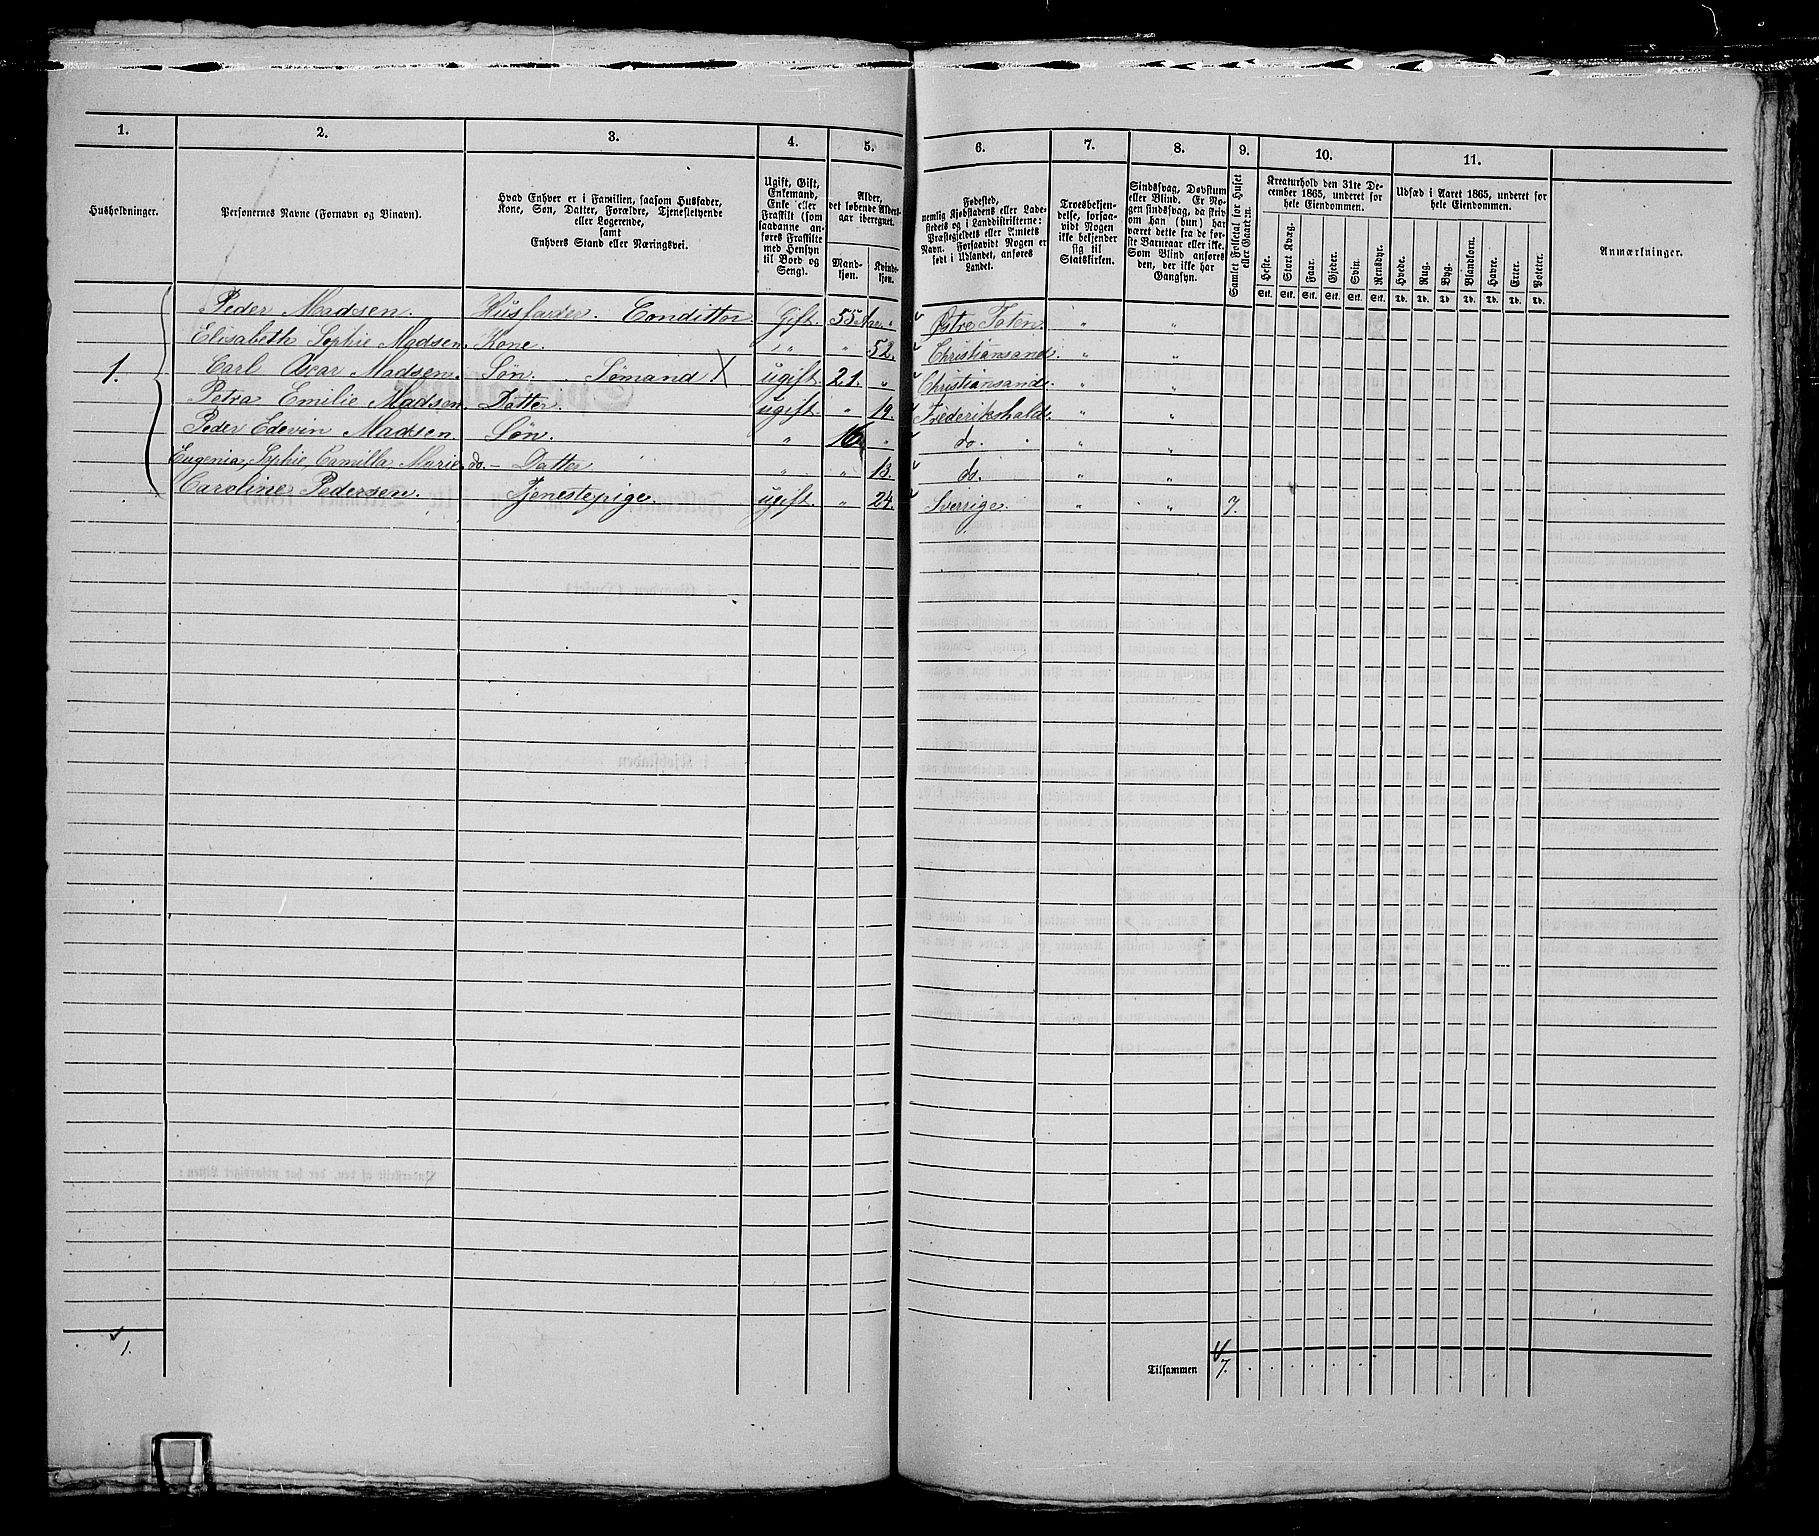 1. 2. 3. 4. 5. 6. 7. 8. 9. 10. 11.
Husholdninger.
Personernes Navne (Fornavn og Tilnavn).
Hvad Enhver er i Familien, saasom Husfader,
Kone, Søn, Datter, Forældre, Tjenestetyende
eller Logerende,
samt
Enhvers Stand eller Næringsvei.
Ugift, Gift,
Enkemand,
Enke eller
Fraskilt (som
saadanne an-
føres Fraskilte
med Hensyn
til Bord og
Seng).
Alder,
det løbende Alders-
aar iberegnet.
Mand-
kjøn.
Kvinde-
kjøn.
Fødested,
nemlig Kjøbstadens eller Lade-
stedets og i Landdistrikterne:
Præstegjeldets eller Amtets
Navn. Forsaavidt Nogen er
født i Udlandet, anføres
Landet.
Troesbekjen-
delse, forsaa-
vidt Nogen
ikke bekjender
sig til
Statskirken.
Sindssvag, Døvstum
eller Blind. Er No-
gen sindssvag, da skriv
om han (hun) har
været dette fra de før-
ste Barneaar eller ikke.
Som Blind anføres
den, der ikke har
Gangsyn.
Samlet Folketal for Huset
eller Gaarden.
Kreaturhold den 31te De-
cember 1865, underet for
hele Eiendommen.
Heste. Stort Kvæg. Faar. Gjeder. Svin. Rensdyr.
Stk. Stk. Stk. Stk. Stk. Stk.
Udsæd i Aaret 1865, underet for
hele Eiendommen.
Hvede. Rug. Byg. Blandkorn. Havre. Erter. Poteter.
Td. Td. Td. Td. Td. Td. Td.
Anmærkninger.
Peder Madsen. Husfader. Conditter. Gift. 55 Aar " Østre Toten " "
Elisabeth Sophie Madsen. Kone. " " " 52. Christiansand. " "
1. Carl Oscar Madsen. Søn. Sømand X ugift. 21. " Christiansand. " "
Petra Emilie Madsen. Datter. ugift. " 19. Frederikshald. " "
Peder Edevin Madsen. Søn. " 16 " do. " "
Eugenia, Sophie, Camilla Marie do.- Datter " " 13. do. " "
Caroline Pedersen. Tjenestepige. ugift. " 24. Sverrige. " " 7.
1.
Tilsammen 7.